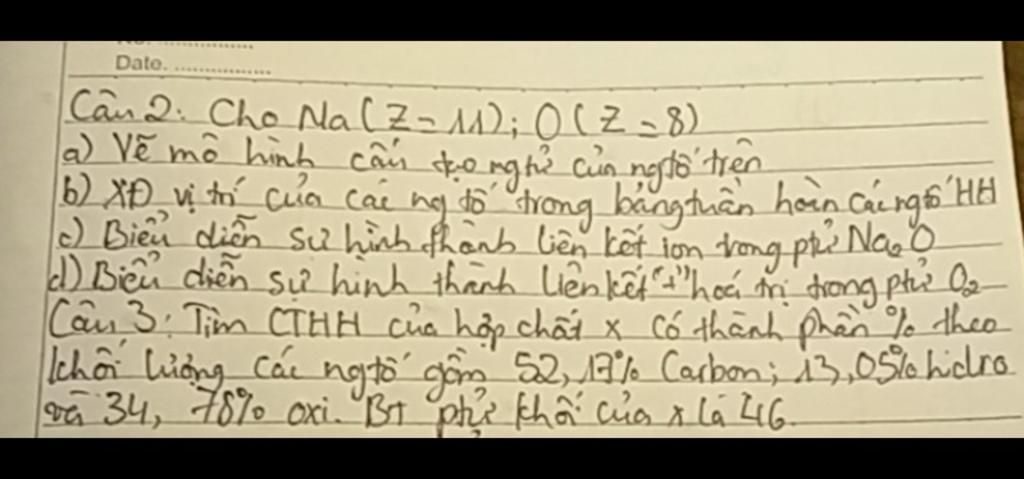 Date. ................
Câu 2: Cho Na (Z = 11); O (Z = 8)
a) Vẽ mô hình cấu tạo ngtử của ngtố trên
b) XĐ vị trí của các ng tố trong bảng tuần hoàn các ngtố HH
c) Biểu diễn sự hình thành liên kết ion trong phtử Na2O
d) Biểu diễn sự hình thành liên kết "+" hoá trị trong phtử O2
Câu 3: Tìm CTHH của hợp chất x có thành phần % theo
khối lượng các ngtố gồm 52,17% Carbon; 13,05% hidro
và 34,78% oxi. Bt phtử khối của x là 46.